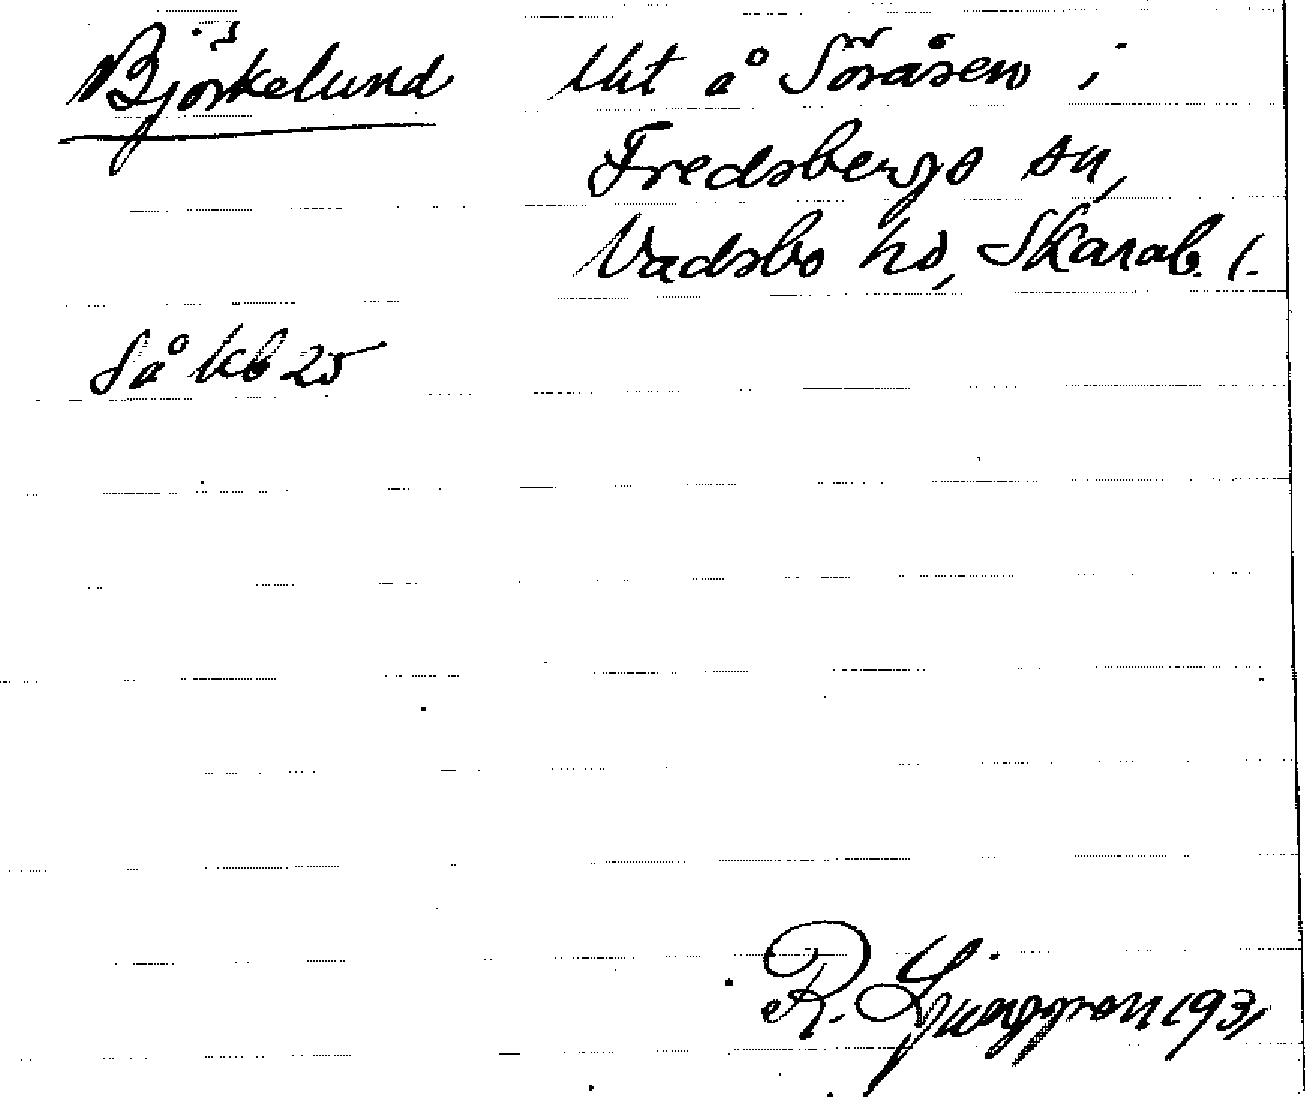 Björkelund Uit å Söråsen i
Fredsbergs sn,
Vadsbo hd, Skarab. l.
så kb 25
R. Ljunggren 1931